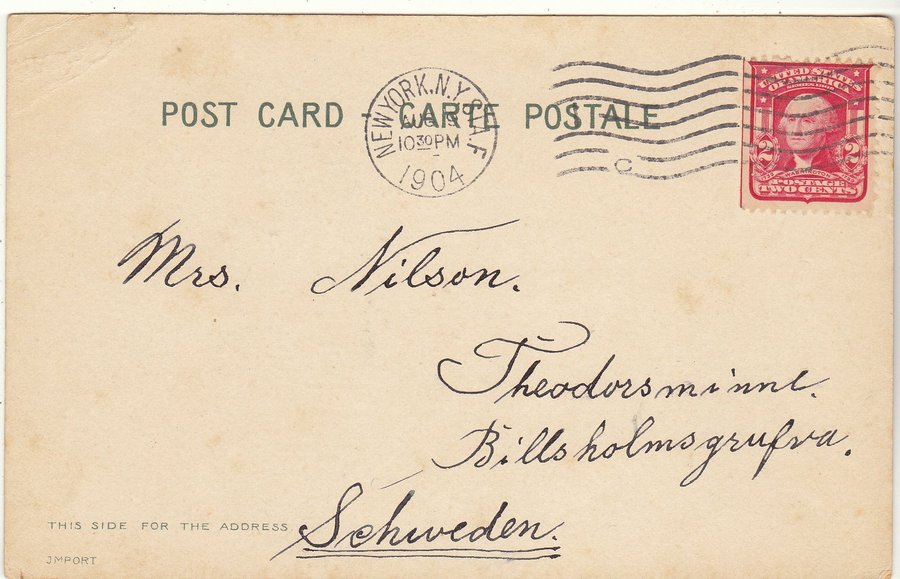 POST CARD - CARTE POSTALE
NEW YORK, N.Y. STA. F
AUG
10 30 PM
1904
C
UNITED STATES
OF AMERICA
SERIES 1902
2 2
1732 WASHINGTON 1799
POSTAGE
TWO CENTS
Mrs. Nilson.
Theodorsminne.
Billsholmsgrufva.
Schweden.
THIS SIDE FOR THE ADDRESS.
JMPORT